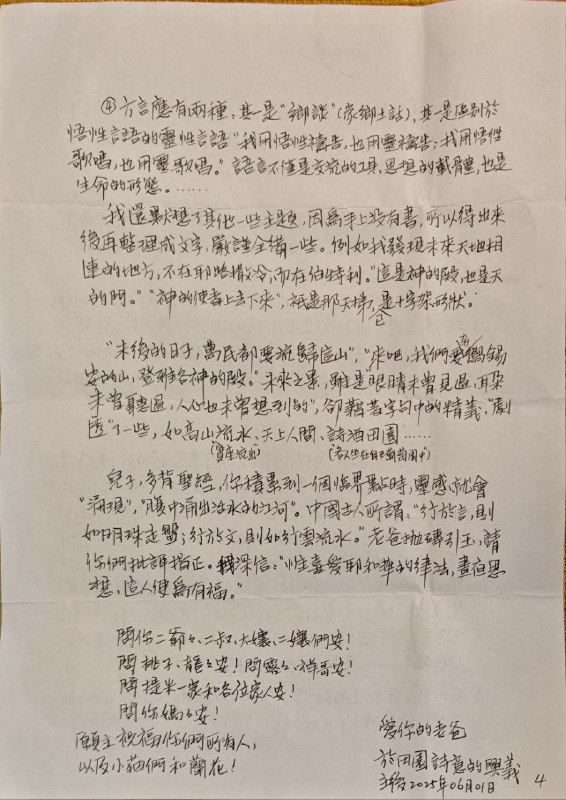 ④方言應有兩種、其一是“鄉談”(家鄉土話)，其一是區別於
悟性言語的靈性言語“我用悟性禱告，也用靈禱告；我用悟性
歌唱，也用靈歌唱。”語言不僅是交流的工具、思想的載體，也是
生命的形態。……
我還默想了其他一些主題，因為手上沒有書，所以得出來
後再整理成文字，嚴謹全備一些。例如我發現未來天地相
連的地方，不在耶路撒冷，而在伯特利。“這是神的殿，也是天
的門。”“神的使者上去下來”，祇是那天梯，是十字架形狀。
“末後的日子，萬民都要流歸這山”，“來吧，我們登錫
安的山，登雅各神的殿。”未來之景，雖是眼睛未曾見過，耳朵
未曾聽過，人心也未曾想到的”，卻藉著字句中的精義，“劇
透”了一些，如高山流水、天上人間、詩酒田園……
(寶座流出)
(各人坐在自己葡萄園中)
兒子，多背聖經，你積累到一個臨界點時，靈感就會
“涌現”，“腹中涌出活水的江河”。中國古人所謂：“行於言，則
如明珠走盤；行於文，則如行雲流水。”老爸拋磚引玉，請
你們批評指正。我深信：“惟喜愛耶和華的律法，晝夜思
想，這人便為有福。”
問你二爺爺、二叔、大孃、二孃們安！
問桃子、龍龍安！問露露、祥哥安！
問提米一家和各位家人安！
問你媽媽安！
願主祝福你們所有人，
以及小貓們和蘭花！
愛你的老爸
於田園詩意的興義
主後2025年06月01日
4